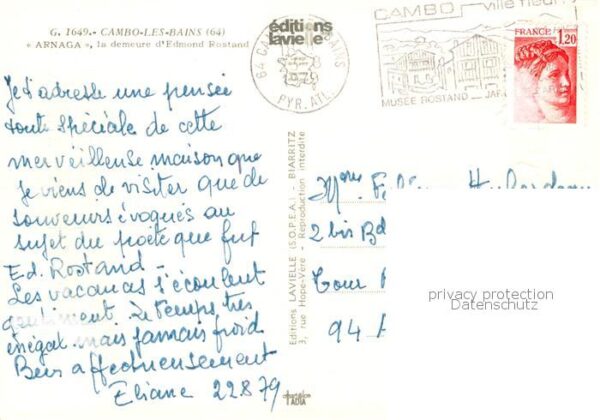 G. 1649.- CAMBO-LES-BAINS (64)
« ARNAGA », la demeure d'Edmond Rostand
éditions
lavielle
64 CAMBO LES BAINS
1979
PYR. ATL.
CAMBO ville fleurie
MUSÉE ROSTAND _ JAR
FRANCE
1,20
Je t'adresse une pensée
toute spéciale de cette
merveilleuse maison que
je viens de visiter que de
souvenirs évoqués au
sujet du poète que fut
Ed. Rostand -
Les vacances s'écoulent
gentiment le temps très
inégal mais jamais froid
Bien affectueusement
Eliane 22 8 79
Editions LAVIELLE (S.O.P.E.A.) - BIARRITZ
3, rue Hope-Vère - Reproduction interdite
Mme
2 bis Bd
Tour
94
privacy protection
Datenschutz